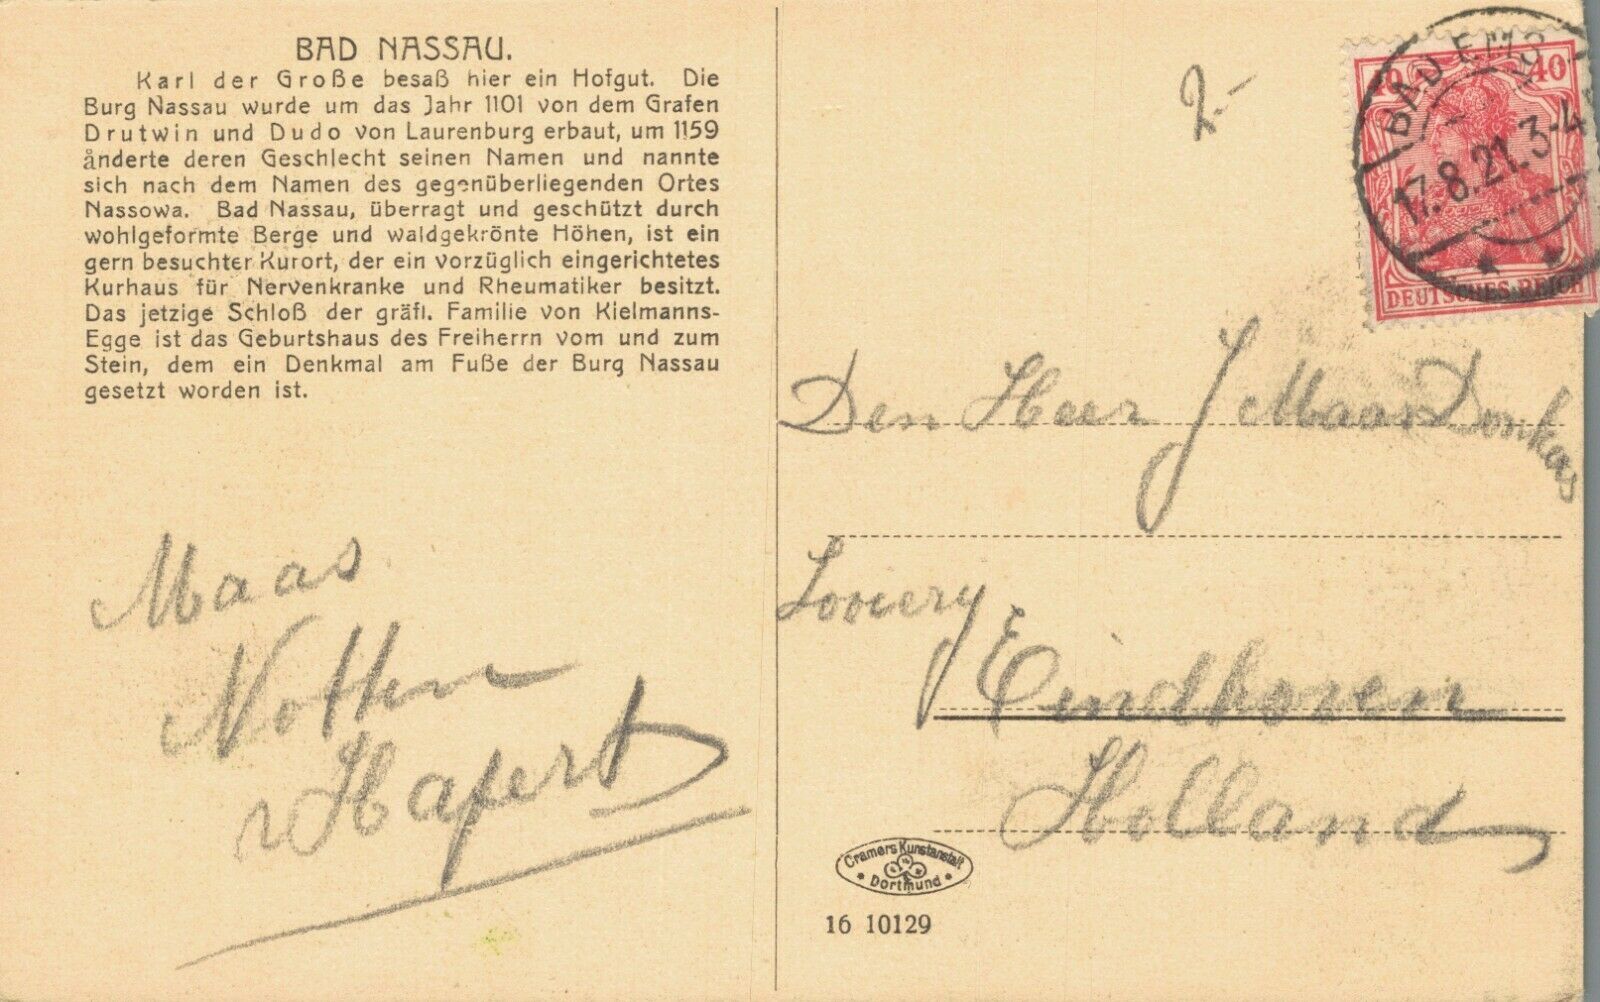 BAD NASSAU.
Karl der Große besaß hier ein Hofgut. Die
Burg Nassau wurde um das Jahr 1101 von dem Grafen
Drutwin und Dudo von Laurenburg erbaut, um 1159
änderte deren Geschlecht seinen Namen und nannte
sich nach dem Namen des gegenüberliegenden Ortes
Nassowa. Bad Nassau, überragt und geschützt durch
wohlgeformte Berge und waldgekrönte Höhen, ist ein
gern besuchter Kurort, der ein vorzüglich eingerichtetes
Kurhaus für Nervenkranke und Rheumatiker besitzt.
Das jetzige Schloß der gräfl. Familie von Kielmanns-
Egge ist das Geburtshaus des Freiherrn vom und zum
Stein, dem ein Denkmal am Fuße der Burg Nassau
gesetzt worden ist.
Maas
Notten
Hafert
2.-
BAD EMS
40 40
17.8.21. 3-4
DEUTSCHES REICH
Den Heer J Maas Donkers
Eindhoven
Holland
Cramers Kunstanstalt
Dortmund
16 10129